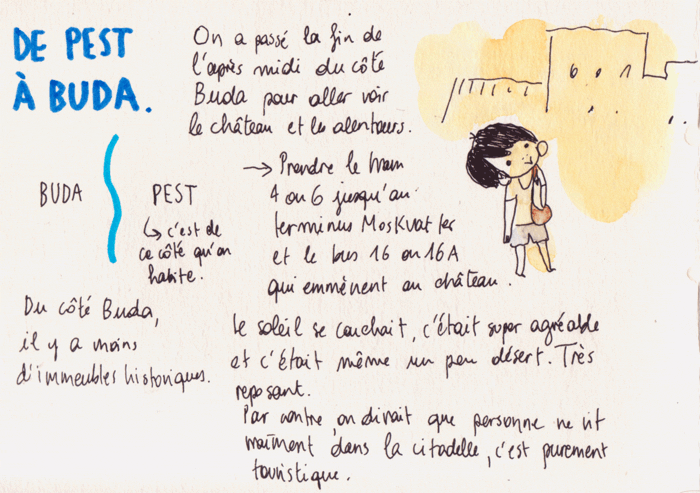 DE PEST
À BUDA.
On a passé la fin de
l'après midi du côté
Buda pour aller voir
le château et les alentours.
BUDA
PEST
↳ c'est de
ce côté qu'on
habite.
→ Prendre le tram
4 ou 6 jusqu'au
terminus Moskva ter
et le bus 16 ou 16A
qui emmènent au château.
Du côté Buda,
il y a moins
d'immeubles historiques.
Le soleil se couchait, c'était super agréable
et c'était même un peu désert. Très
reposant.
Par contre, on dirait que personne ne vit
vraiment dans la citadelle, c'est purement
touristique.